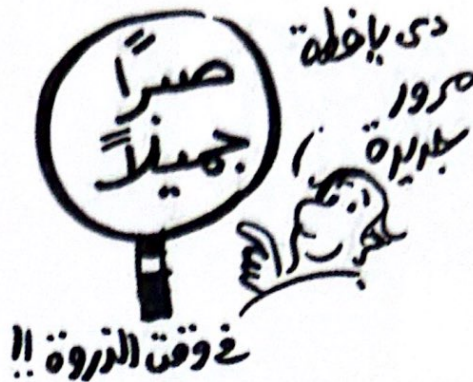 دى يافطة
مرور
جديدة
صبراً
جميلاً
فى وقت الذروة !!